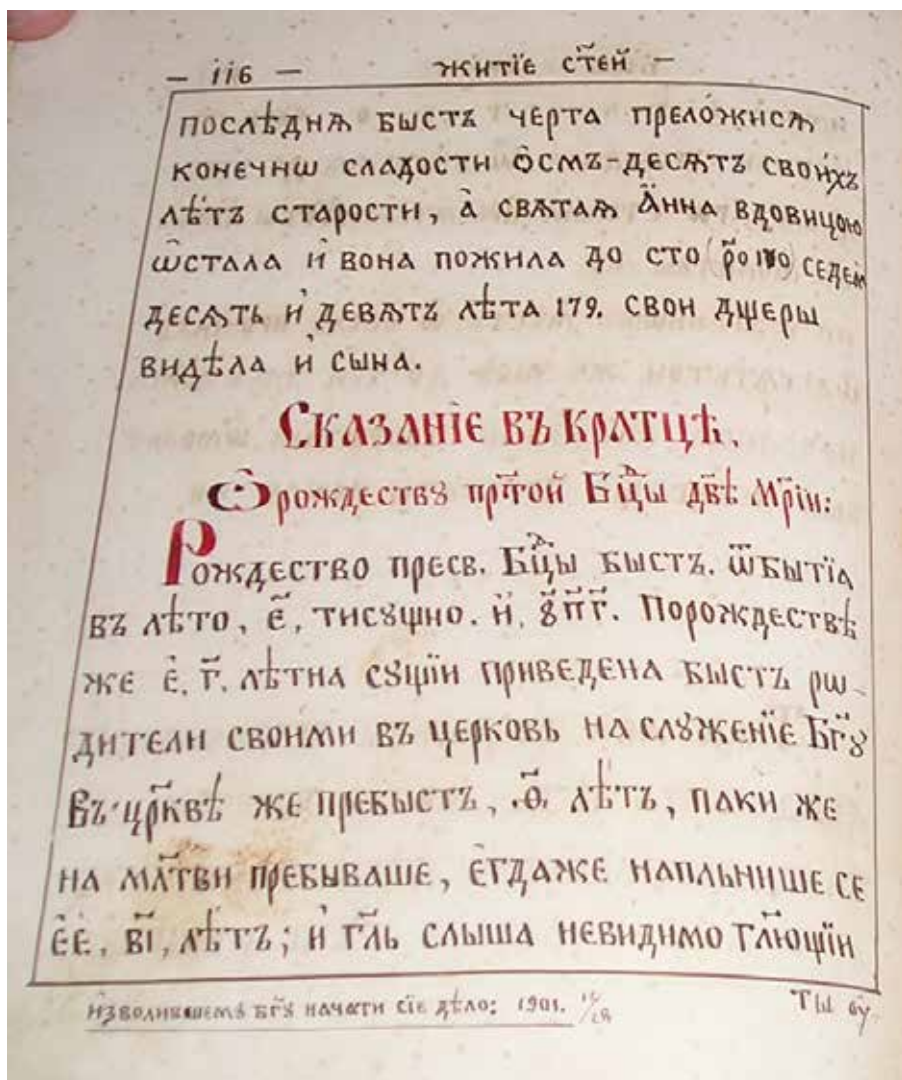 — ііб — житїе ст҃ей —
послѣднѧ быстъ черта преложисѧ
конечнѡ сладости ѻсмъ-десѧтъ своихъ
лѣтъ старости, а свѧтаѧ Анна вдовицою
ѡстала и вона пожила до сто седем
десѧть и девѧтъ лѣта 179. свои дщеры
видѣла и сына.
Сказанїе въ кратцѣ.
Ѽ рождествꙋ прⷭ҇той Бцⷣы дв҃ѣ Мр҃їи:
Рождество пресв. Бцⷣы быстъ. ѿ бытїа
въ лѣто, є҃, тисꙋщно. и, ꙋ҃п҃г҃. Порождествѣ
же є҆. г҃. лѣтна сꙋщїи приведена быстъ рѡ-
дители своими въ церковь на слꙋженїе Бг҃ꙋ
Въ цр҃квѣ же пребыстъ, .ѳ҃. лѣтъ, паки же
на мл҃тви пребываше, єгдаже напльнише се
єє, в҃і, лѣтъ; и гл҃ь слыша невидимо гл҃ющїи
Ты ѹ
изволившемꙋ бг҃ꙋ начати сїе дѣло: 1901.